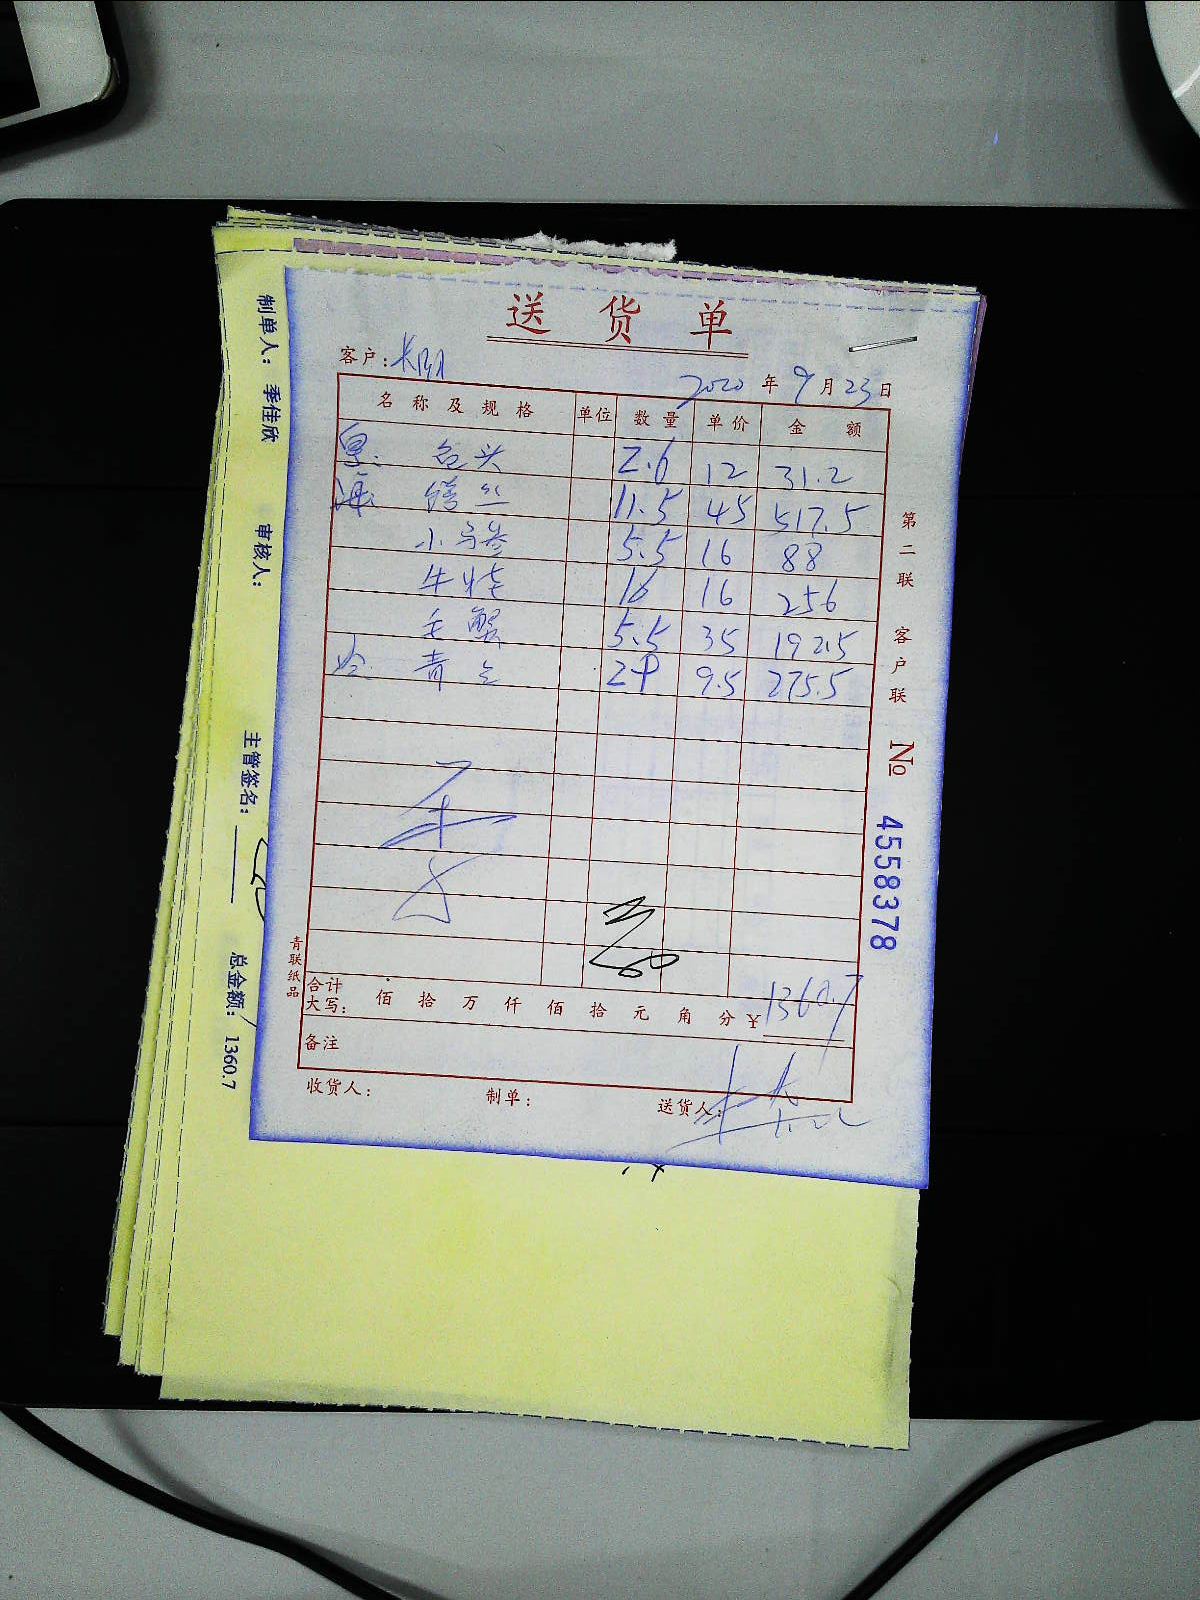 送货单
客户:
2020年9月23日
名称及规格 单位 数量 单价 金额
2.6 12 31.2
11.5 45 517.5
小 5.5 16 88
牛 16 16 256
毛蟹 5.5 35 192.5
青 9.5 275.5
合计大写: 佰拾万仟佰拾元角分 ¥1360.7
备注
收货人: 制单: 送货人:
第二联 客户联 № 4558378
青联纸品
制单人: 季佳欣 审核人: 主管签名: 总金额: 1360.7